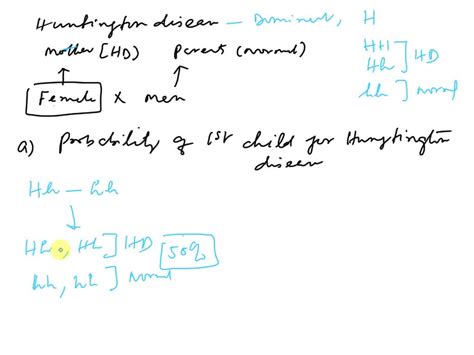 Huntington disease — Dominent, H
mother [HD) Parents (normal)
HH
Hh ] HD
hh ] Normal
Female X men
a) Probability of 1st child for Hungtington
disease
Hh — hh
Hh, Hh ] HD 50%
hh, hh ] Normal